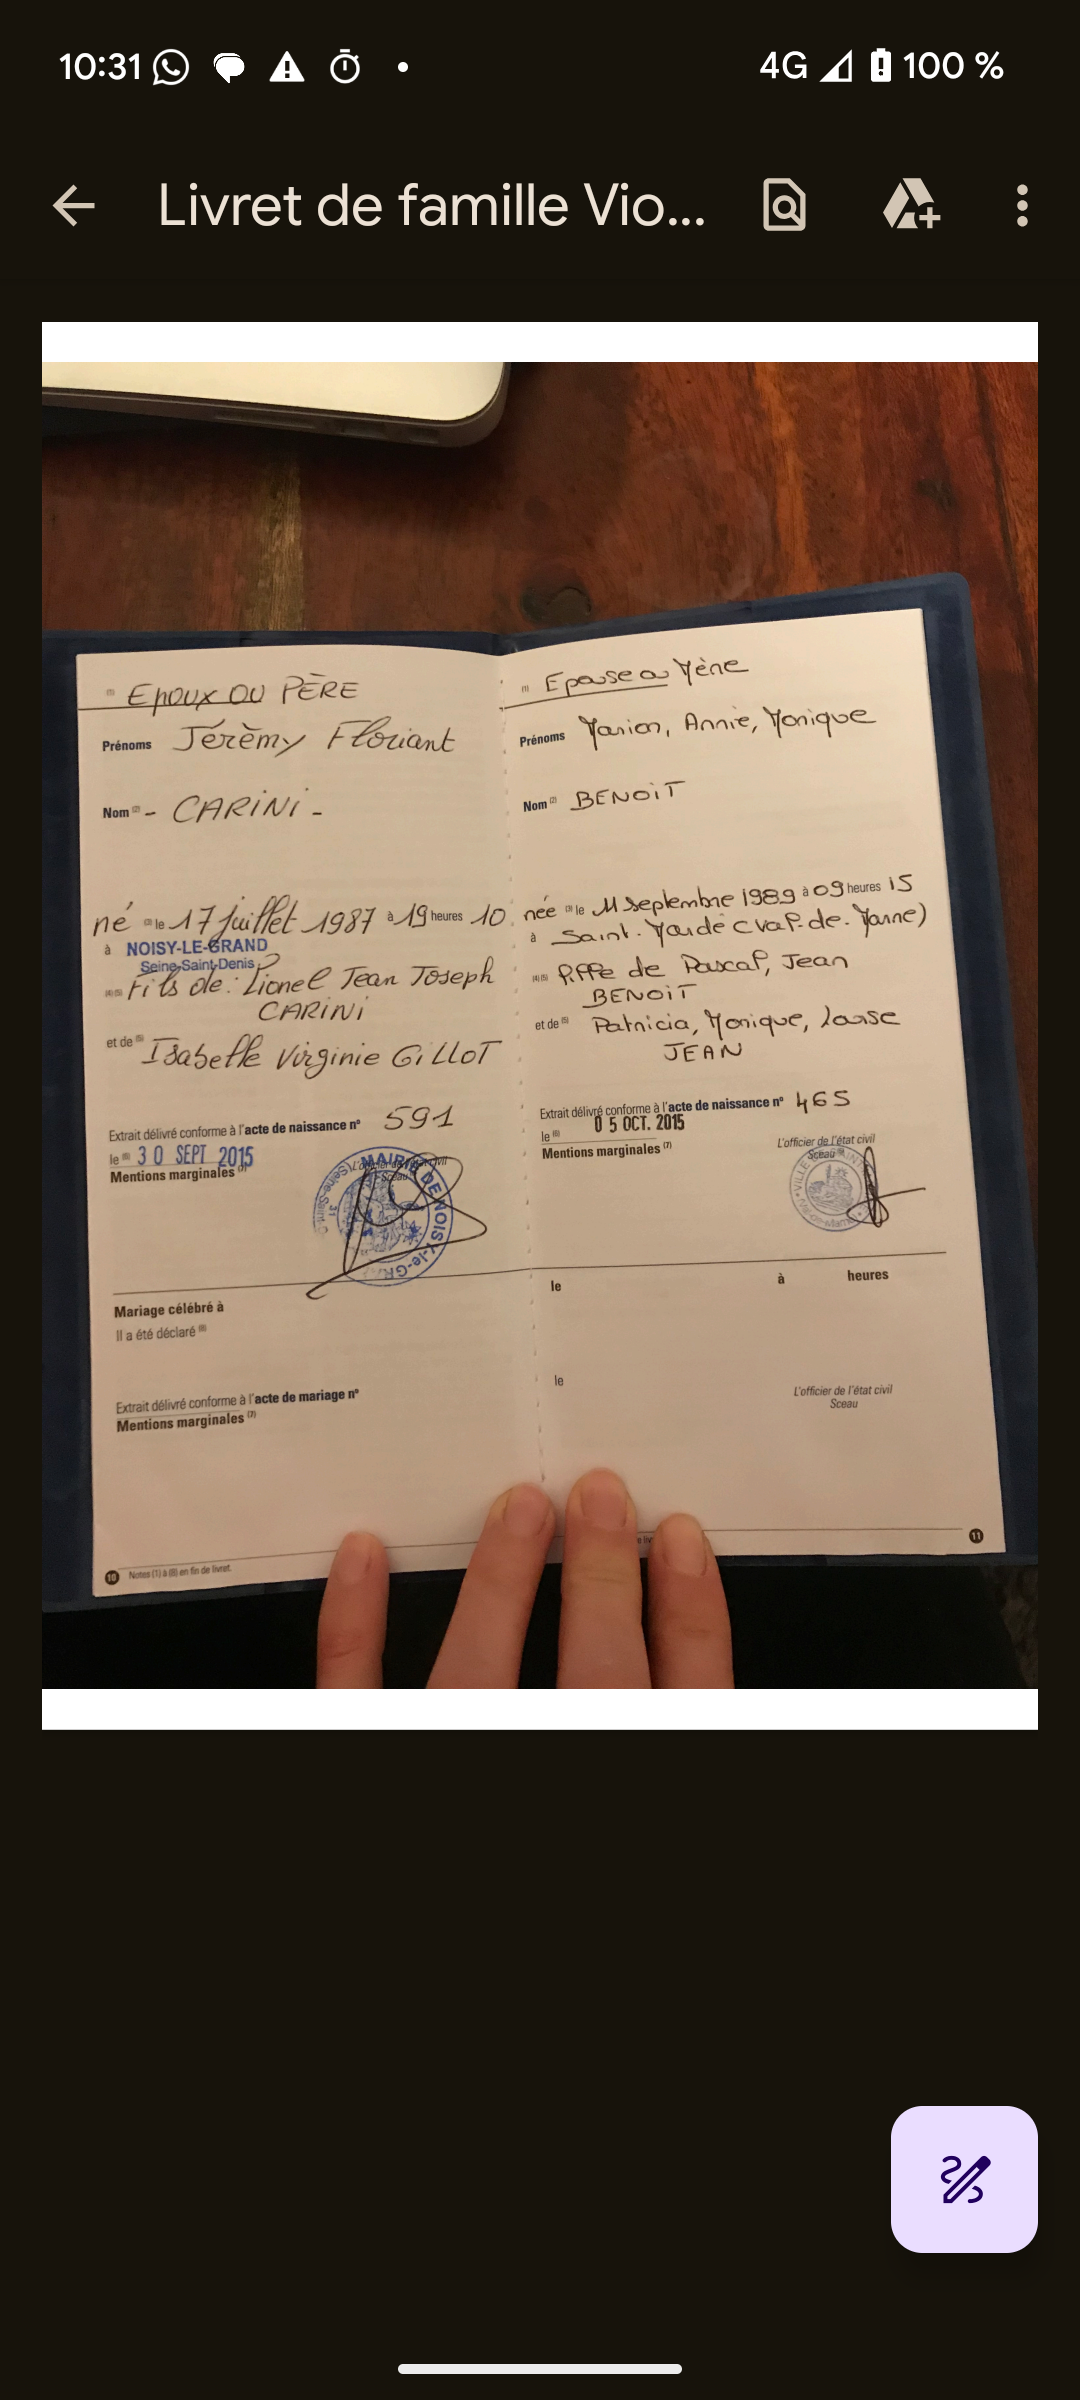 10:31
4G 100 %
Livret de famille Vio...
(1) Epoux OU PÈRE
Prénoms Jérèmy Floriant
Nom (2) - CARiNi -
né (3) le 17 juillet 1987 à 19 heures 10
à NOISY-LE-GRAND
Seine-Saint-Denis
(4)(5) Fils de : Lionel Jean Joseph
CARiNi
et de (5) Isabelle Virginie GiLLOT
Extrait délivré conforme à l'acte de naissance n° 591
le (6) 30 SEPT 2015
Mentions marginales (7)
L'officier de l'état civil
Sceau
MAIRIE DE NOISY-le-GRAND
Mariage célébré à
Il a été déclaré (8)
Extrait délivré conforme à l'acte de mariage n°
Mentions marginales (7)
10 Notes (1) à (8) en fin de livret.
(1) Epouse ou Mère
Prénoms Marion, Annie, Monique
Nom (2) BENOiT
née (3) le 11 Septembre 1989 à 09 heures 15
à Saint-Mandé (Val-de-Marne)
(4)(5) fille de Pascal, Jean
BENOiT
et de (5) Patricia, Monique,
JEAN
Extrait délivré conforme à l'acte de naissance n° 465
le (6) 05 OCT. 2015
Mentions marginales (7)
L'officier de l'état civil
Sceau
le à heures
le
L'officier de l'état civil
Sceau
11